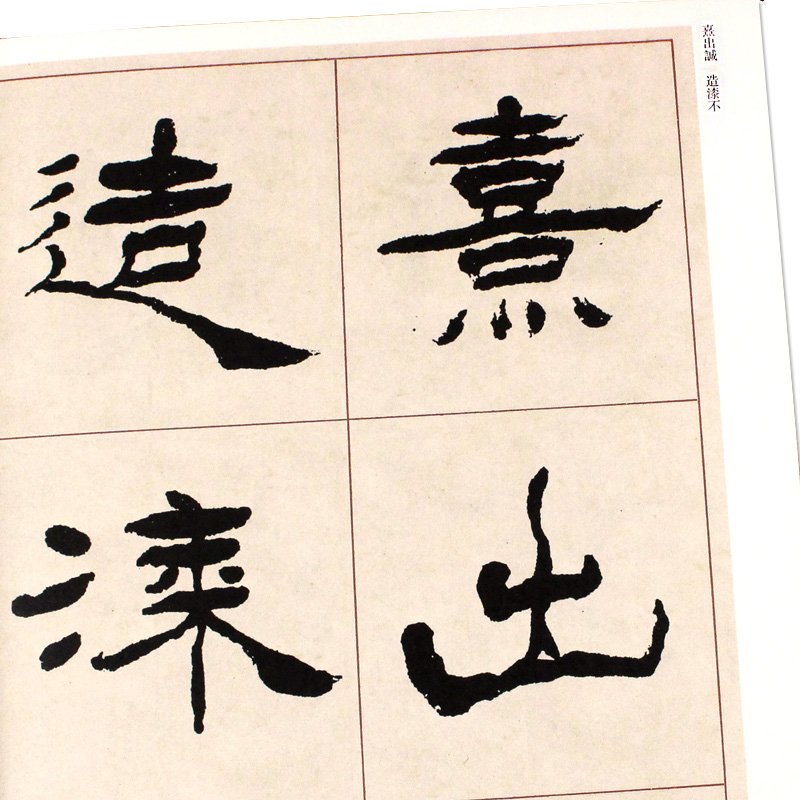 熹出誠 造漆不
熹出
造漆